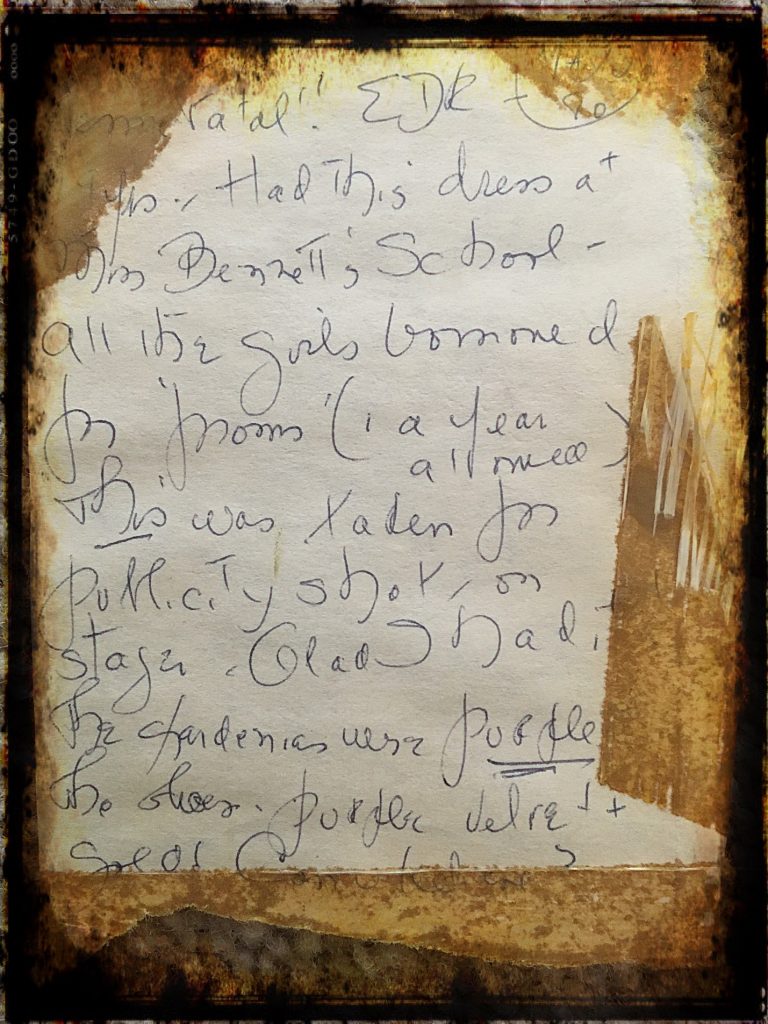 Natal". EDR -
Had This dress at
Miss Bennett's School -
all the girls borrowed
for 'proms' (1 a year
allowed)
This was taken for
Publicity shot, on
stage. Glad I had it
The gardenias were purple
The shoes. purple velvet +